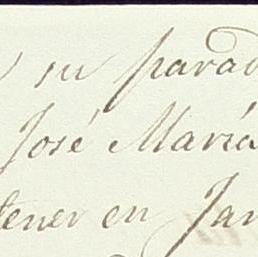 su parad
José María
tener en Jar